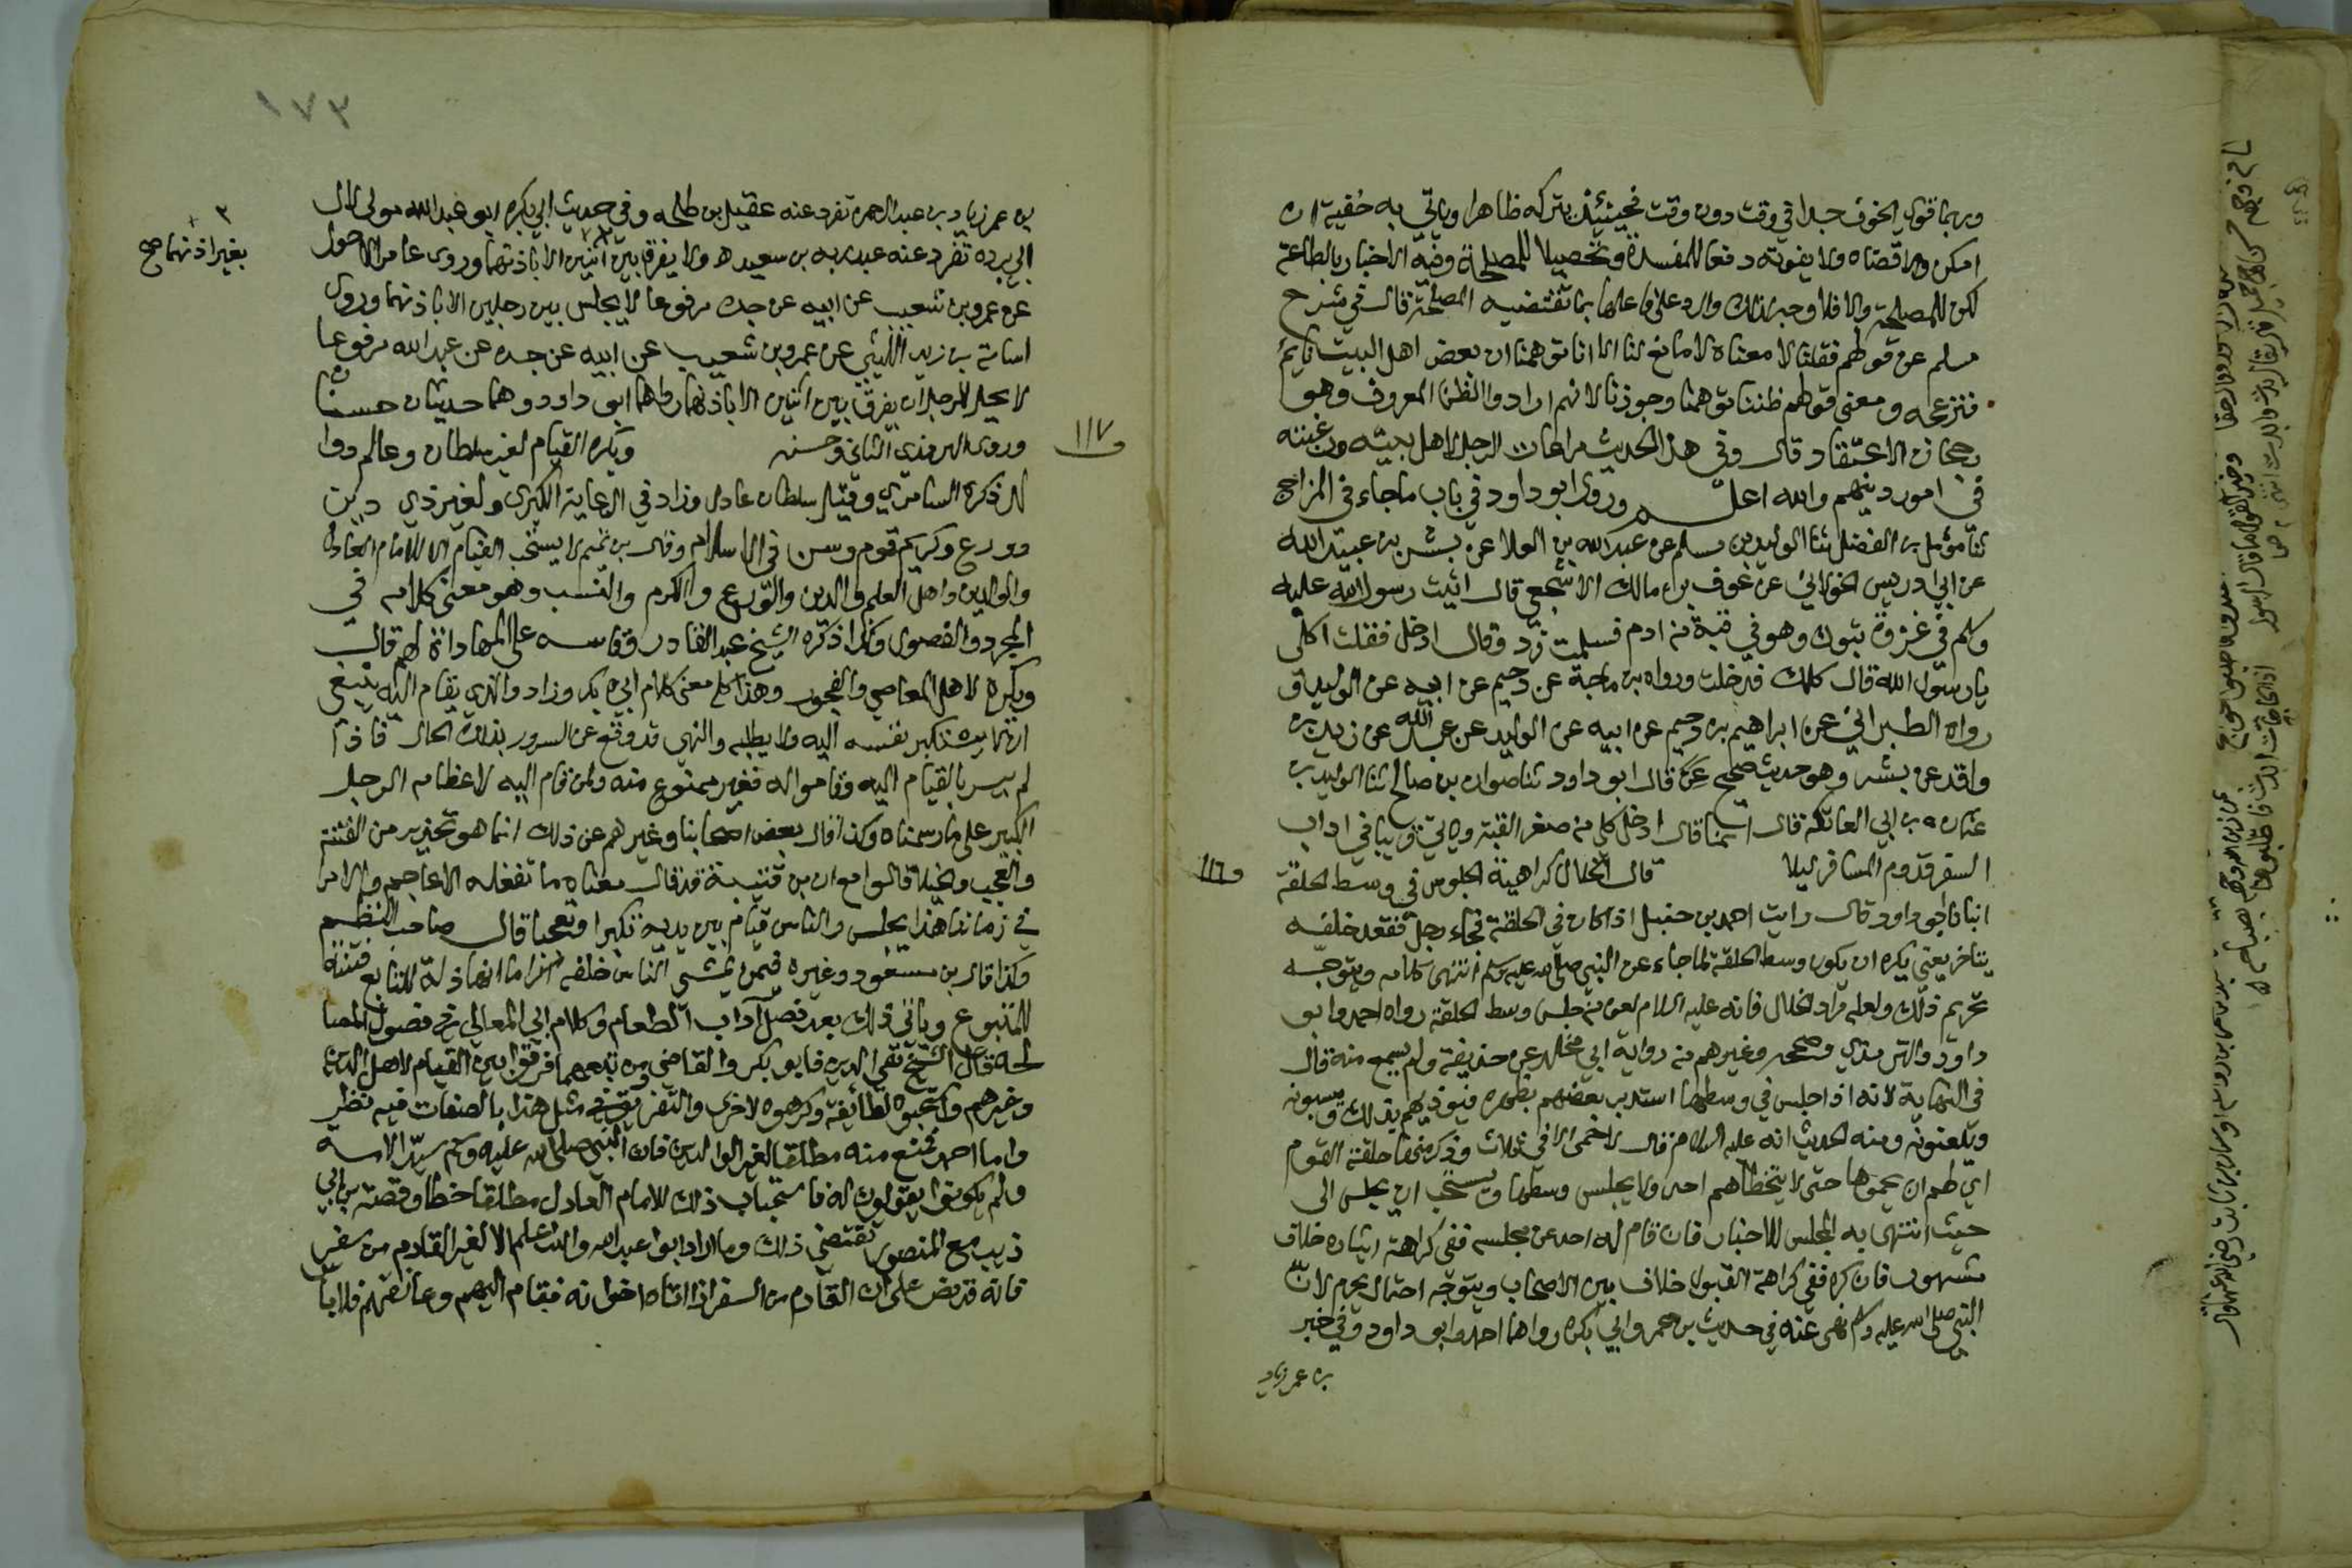 وربما قوي الخوف جدا في وقت دون وقت فحينئذ يتركه ظاهرا وياتي به خفية ان
امكن والا قضاه ولا يفوته دفعا للمفسدة وتحصيلا للمصلحة وفيه الاخبار بالطاعة
لكن للمصلحة والا فلا وجه لذلك والرد على فاعلها بما تقتضيه المصلحة قال في شرح
مسلم عن قولهم فقلنا لا معناه لا مانع لنا الا انا توهمنا ان بعض اهل البيت نايم
فنزعجه ومعنى قولهم ظننا توهمنا وجوزنا لا انهم ارادوا الظن المعروف وهو
رجحان الاعتقاد قال وفي هذا الحديث مراعات الرجل لاهل بيته ورغبته
في امور دينهم والله اعلم وروى ابو داود في باب ما جاء في المزاح
ثنا مؤمل بن الفضل ثنا الوليد بن مسلم عن عبد الله بن العلا عن بشر بن عبيد الله
عن ابي ادريس الخولاني عن عوف بن مالك الاشجعي قال اتيت رسول الله عليه
وسلم في غزوة تبوك وهو في قبة من ادم فسلمت فرد وقال ادخل فقلت اكلي
يا رسول الله قال كلك فدخلت ورواه بن ماجة عن دحيم عن ابيه عن الوليد و
رواه الطبراني عن ابراهيم بن دحيم عن ابيه عن الوليد عن عبد الله عن زيد بن
واقد عن بشر وهو حديث صحيح قال ابو داود ثنا صفوان بن صالح ثنا الوليد ثنا
عثمان بن ابي العاتكة قال انما قال ادخل كلي من صغر القبة وياتي قريبا في اداب
السفر قدوم المسافر ليلا قال الخلال كراهية الجلوس في وسط الحلقة
١١٦
انبانا ابو داود قال رايت احمد بن حنبل اذا كان في الحلقة فجاء رجل فقعد خلفه
يتاخر يعني يكره ان يكون وسط الحلقة لما جاء عن النبي صلى الله عليه وسلم انتهى كلامه ويتوجه
تحريم ذلك ولعله مراد الخلال فانه عليه السلام لعن من جلس وسط الحلقة رواه احمد وابو
داود والترمذي وصححه وغيرهم من رواية ابي مخلد عن حذيفة ولم يسمع منه قال
في النهاية لانه اذا جلس في وسطها استدبر بعضهم بظهره فيؤذيهم بذلك ويسبونه
ويلعنونه ومنه الحديث انه عليه السلام قال لا حمى الا في ثلاث وذكر منها حلقة القوم
اي لهم ان يحموها حتى لا يتخطاهم احد ولا يجلس وسطها ويستحب ان يجلس الى
حيث انتهى به المجلس للاخبار فان قام له احد عن مجلسه ففي كراهة ايثاره خلاف
مشهور فان كره ففي كراهة القبول خلاف بين الاصحاب ويتوجه احتمال يحرم لان
النبي صلى الله عليه وسلم نهى عنه في حديث بن عمر وابي بكره رواهما احمد وابو داود وفي خبر
بن عمر زياد
١٧٣
بن عمر زياد بن عبد الرحمن تفرد عنه عقيل بن طلحه وفي حديث ابي بكره ابو عبد الله مولى لال
ابي برده تفرد عنه عبد ربه بن سعيد ولا يفرق بين اثنين الا باذنهما وروى عامر الاحول
بغير اذنهما صح
عن عمرو بن شعيب عن ابيه عن جده مرفوعا لا يجلس بين رجلين الا باذنهما وروى
اسامة بن زيد الليثي عن عمرو بن شعيب عن ابيه عن جده عن عبد الله مرفوعا
لا يحل للرجل ان يفرق بين اثنين الا باذنهما رواهما ابو داود وهما حديثان حسنان
١١٧
وروى الترمذي الثاني وحسنه ويكره القيام لغير سلطان وعالم ووا
لد ذكره السامري وقيل سلطان عادل وزاد في الرعاية الكبرى ولغير ذي دين
وورع وكريم قوم وسن في الاسلام وقال بن تميم لا يستحب القيام الا للامام العادل
والوالدين واهل العلم والدين والورع والكرم والنسب وهو معنى كلامه في
المجرد والفصول وكذا ذكره الشيخ عبد القادر وقاسه على المهاداة لهم قال
ويكره لاهل المعاصي والفجور وهذا كله معنى كلام ابي بكر وزاد والذي يقام اليه ينبغي
ان تكبر نفسه اليه ولا يطلبه والنهي قد وقع عن السرور بذلك الحال فاذا
لم يسر بالقيام اليه وقاموا له فغير ممنوع منه ولمن قام اليه لاعظام الرجل
الكبير على ما رسمناه وكذا قال بعض اصحابنا وغيرهم عن ذلك انما هو تحذير من الفتنة
والعجب والخيلا قالوا مع ان بن قتيبة قد قال معناه ما تفعله الاعاجم والامرا
في زماننا هذا يجلس والناس قيام بين يديه تكبرا وتعجبا قال صاحب النظم
وكذا قال بن مسعود وغيره فيمن يمشي الناس خلفه اكراما انها ذلة للتابع فتنة
للمتبوع وياتي ذلك بعد فصل آداب الطعام وكلام ابي المعالي في فصول المصا
لحة قال الشيخ تقي الدين فابو بكر والقاضي ومن تبعهما فرقوا بين القيام لاهل الدين
وغيرهم واستحبوه لطايفة وكرهوه لاخرى والتفريق في مثل هذا بالصفات فيه نظر
واما احمد فمنع منه مطلقا لغير الوالدين فان النبي صلى الله عليه وسلم سيد الامة
ولم يكونوا يقومون له فاستحباب ذلك للامام العادل مطلقا خطا وقصة بن ابي
ذيب مع المنصور تقتضي ذلك وما اراد ابو عبد الله والله اعلم الا لغير القادم من سفر
فانه قد نص على ان القادم من السفر اذا اتاه اخوانه فقام اليهم وعانقهم فلا باس